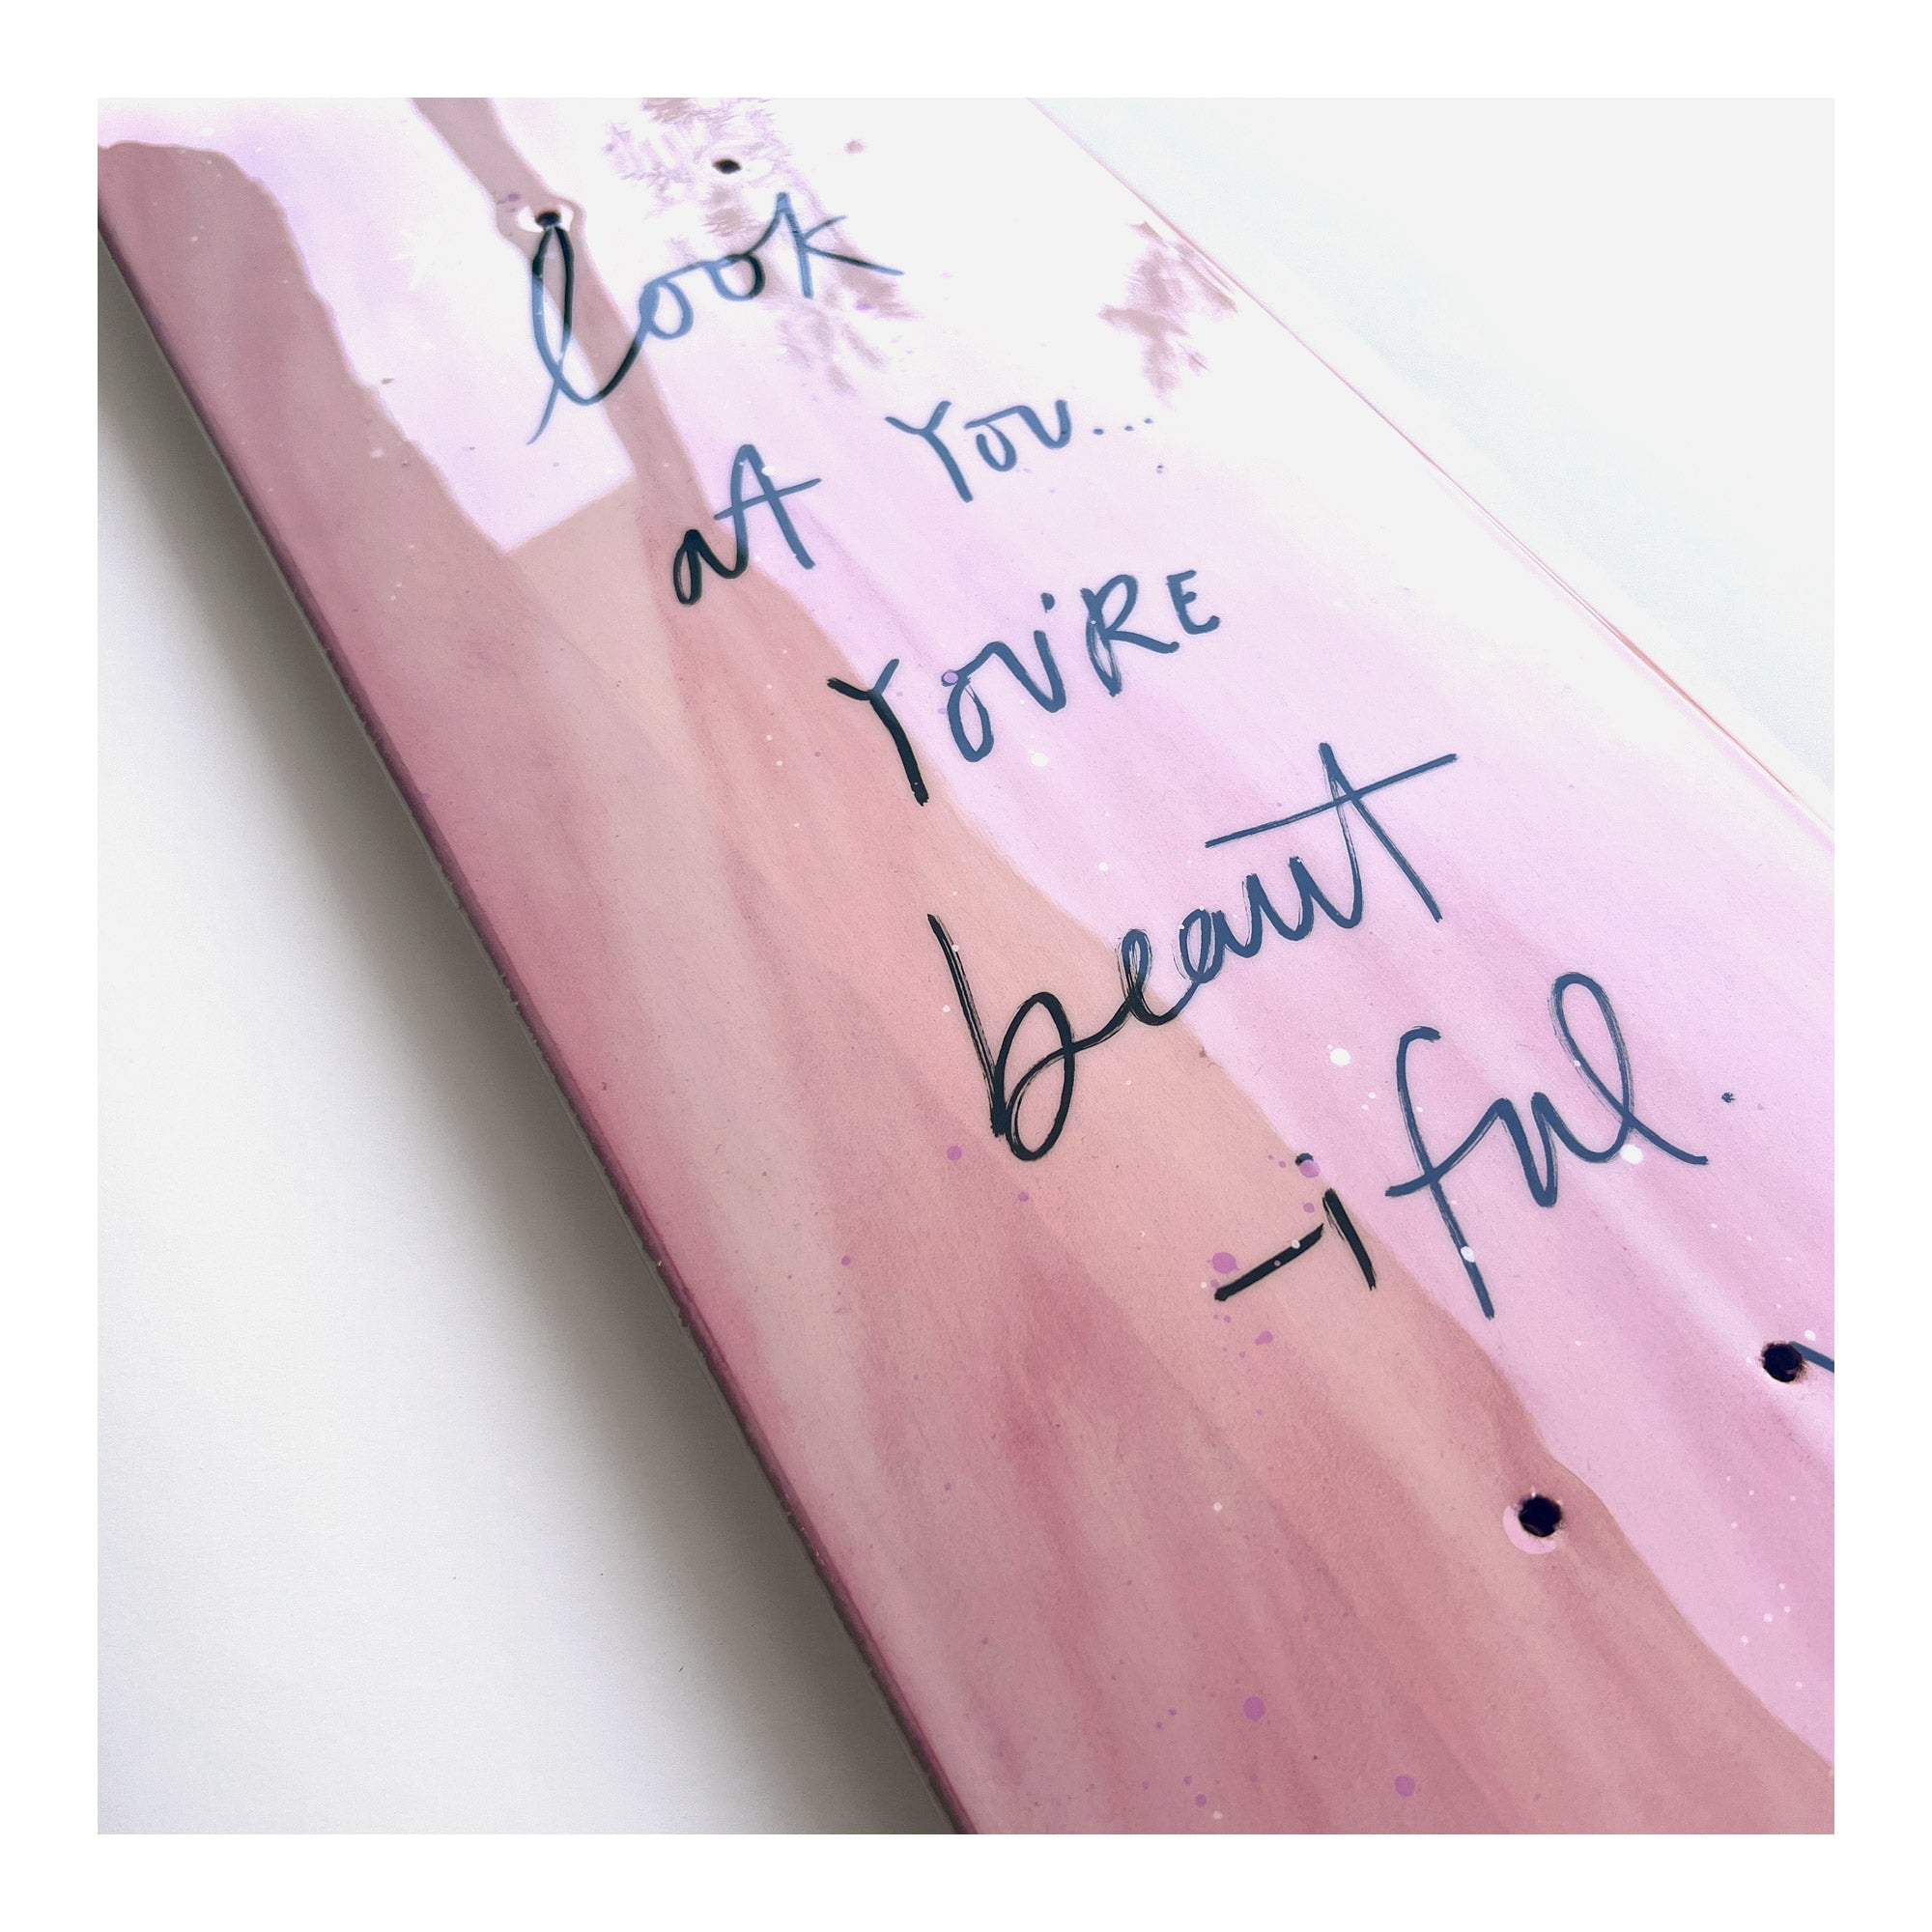 look
at you...
you're
beaut
-iful.